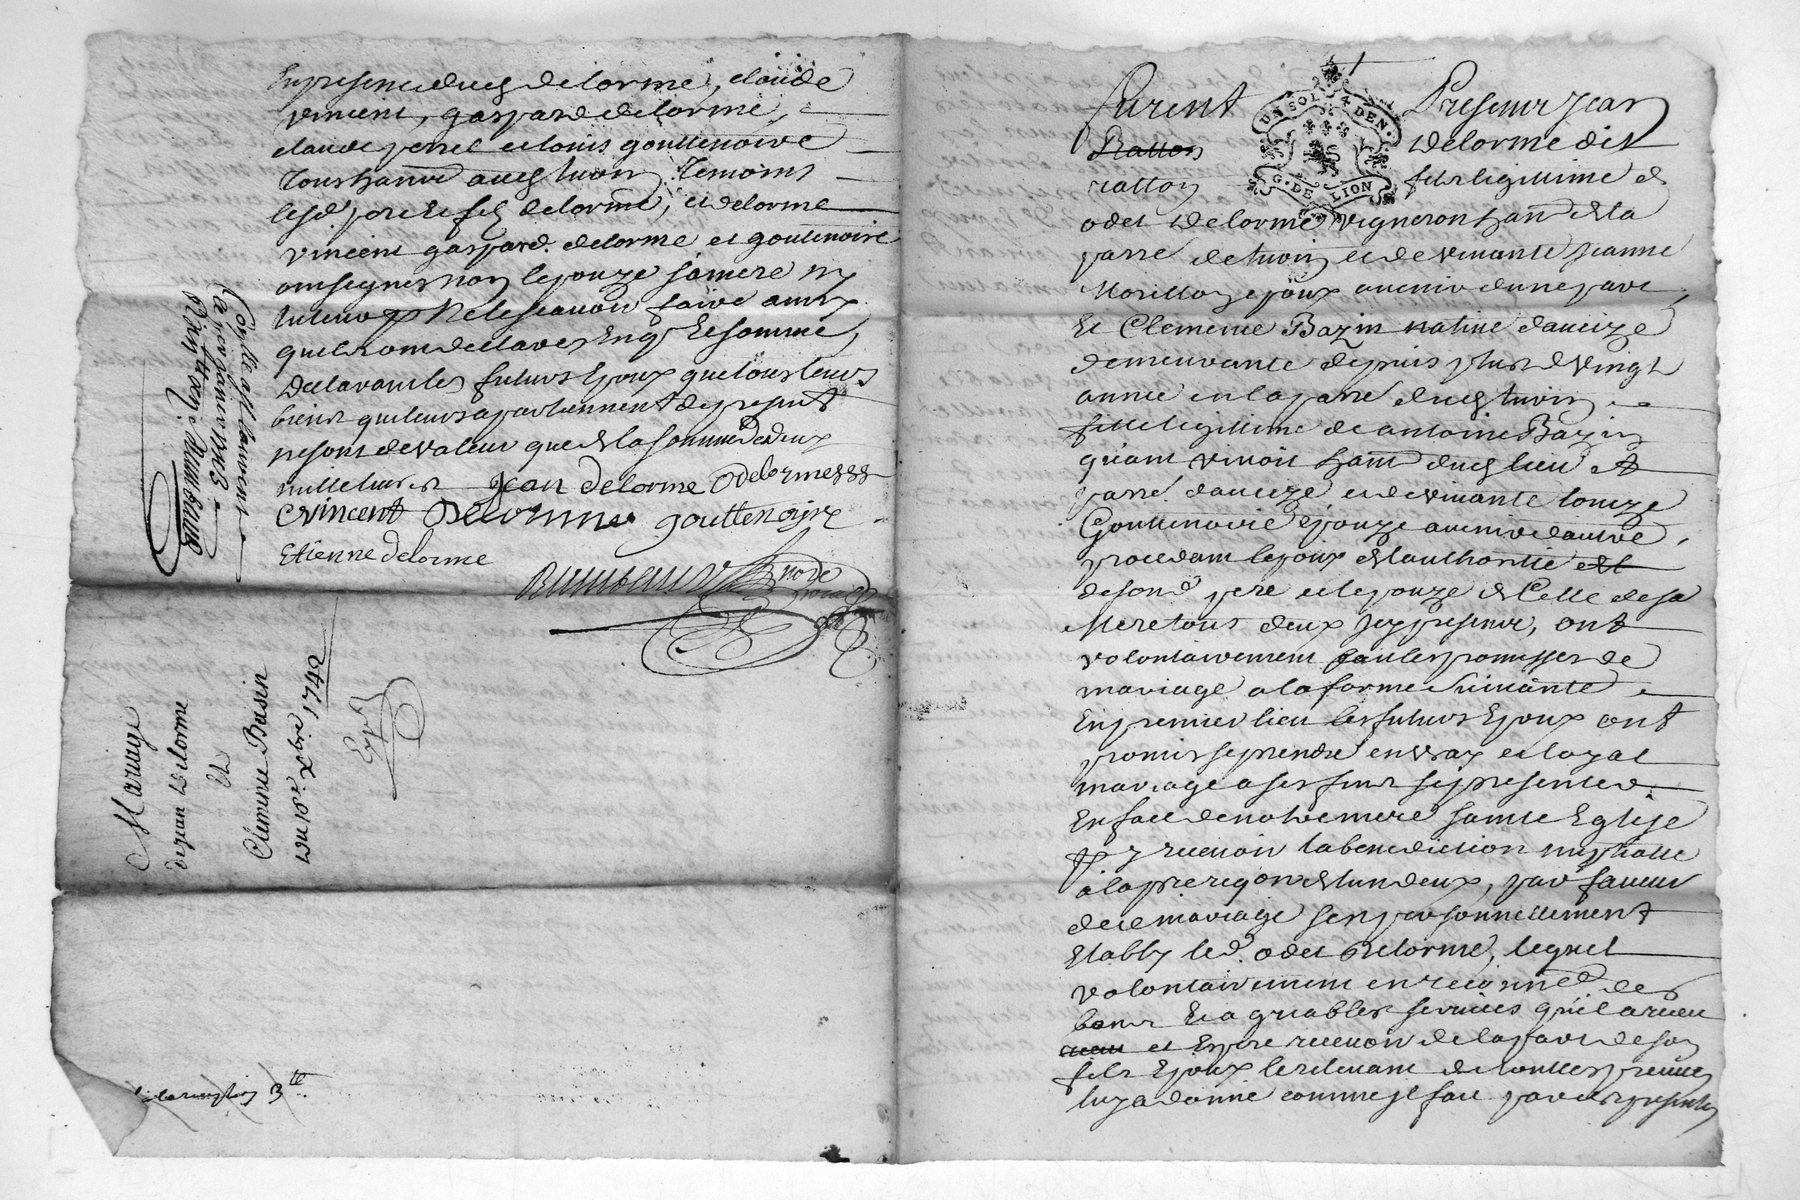 En presence dud. delorme, claude
vincent, gaspard delorme,
claude perret et louis gouttenoire
tous han. aud. Thurin Temoins
les d. pere et fils delorme, et delorme
vincent gaspard delorme et goutenoire
ont signes non lepouze sa mere ny
ne le scavoir faire ainsy
quils ont declare Enq. Et somme,
declarant les futurs Epoux que tous leurs
biens qui leurs apartiennent de present
ne sont de valeur que de la somme de deux
mille livres Jean delorme O delorme
C vincent Delorme gouttenoire
Etienne delorme
Mariage
de jean Delorme
et
Clemence Basin
Du 18e Xbre 1742
Expé
3te.
Furent Presens jean
Ratton delorme dit
ratton fils legitime de
odet delorme vigneron han. de la
parre. de thurin et de vivante jeanne
Morillon epoux avenir dune part,
Et Clemence Bazin native daveize
demeurante depuis plus de vingt
année en la parre. dud. thurin
fille legitime de antoine Bazin
quant vivoit han. dud. lieu et
parre. daveize et de vivante
Gouttenoire epouze avenir dautre,
procedant lepoux de lauthorité
de sond. pere et lepouze de Celle de sa
Mere tous deux icy presens, ont
volontairement fait les promesses de
mariage a la forme Suivante
En premier lieu les futurs Epoux ont
promis se prendre en vray et loyal
mariage a ses fins se presenter
En face de notre mere sainte Eglize
p. y recevoir la benediction nuptialle
a la pre. re q. on de lun deux, par faveur
de ce mariage sest personnellement
Etably led. odet delorme, lequel
volontairement en reconn. des
bons Et agreables services quil a receu
et Espre recevoir de la part de son
fils Epoux le relevant de touttes preuves
luy a donné comme il fait par ces presentes
UN SOL 4 DEN.
G. DE LION